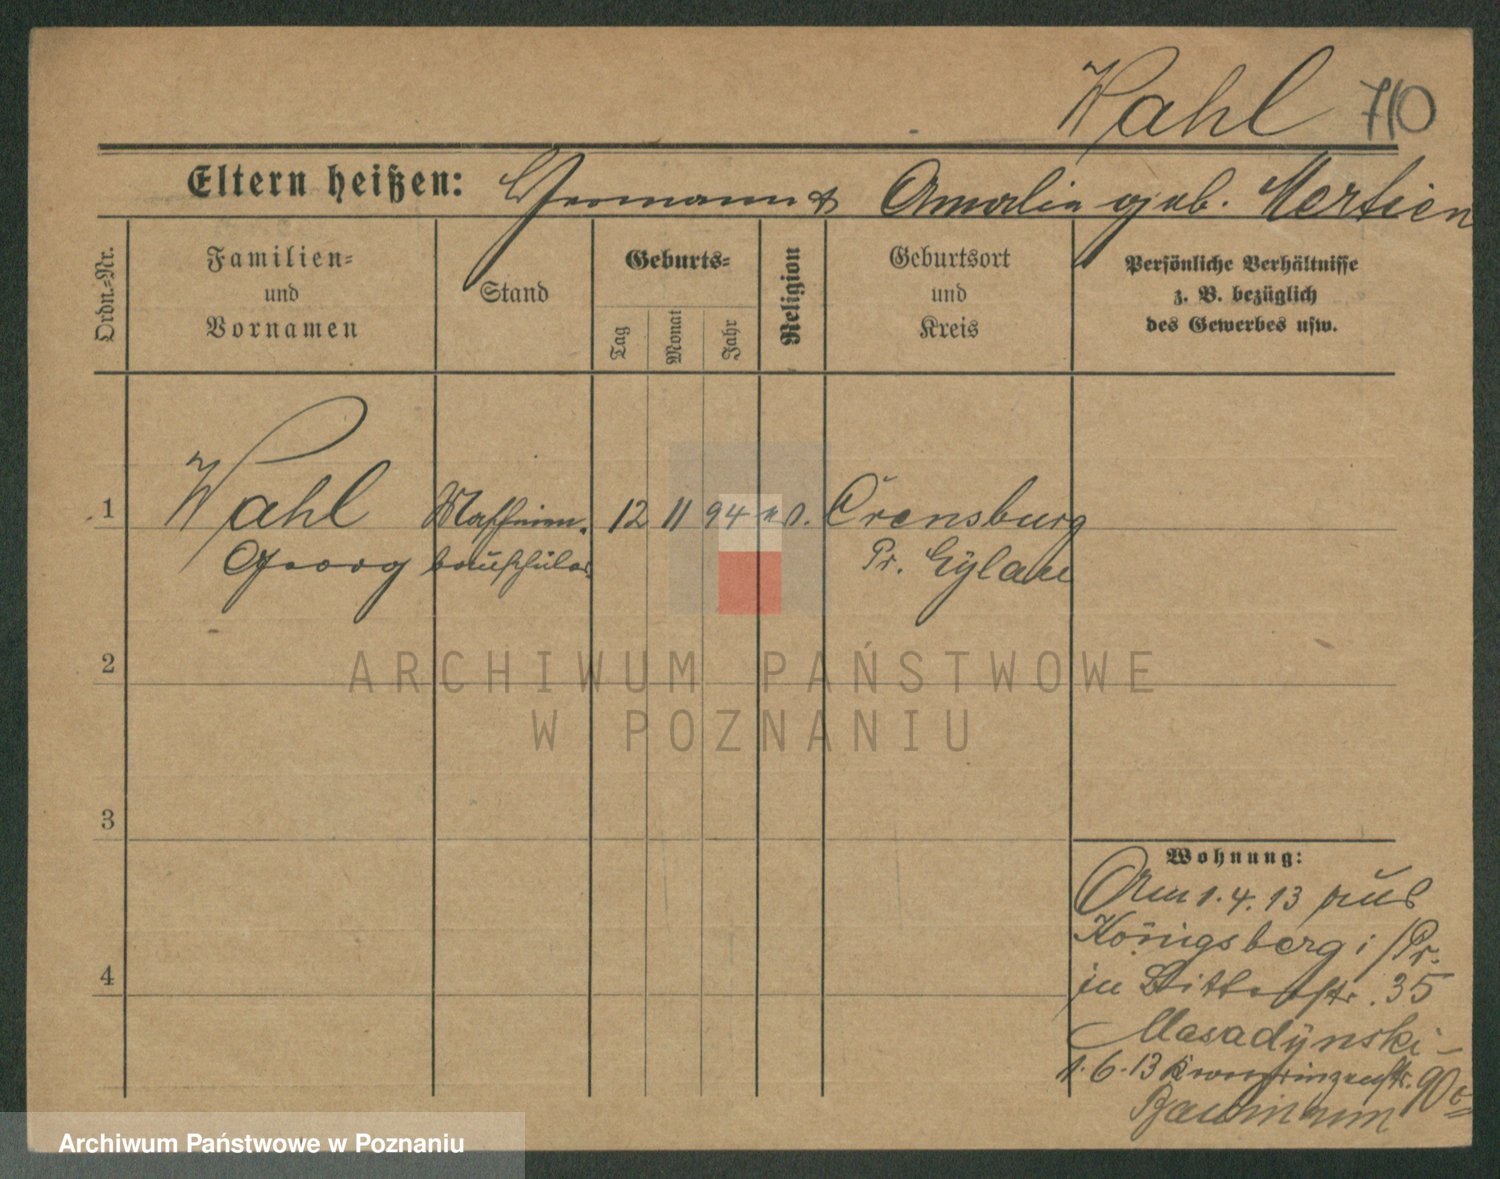 Wahl 710
Eltern heißen: Hermann & Amalie geb. Mertsien
Ordn.-Nr.
Familien=
und
Vornamen
Stand
Geburts=
Tag
Monat
Jahr
Religion
Geburtsort
und
Kreis
Persönliche Verhältnisse
z. B. bezüglich
des Gewerbes usw.
1 Wahl Maschinen. 12 11 94 Crensburg
Georg bauschüler Pr. Eylau
2
3
4
Wohnung:
Am 1.4.13 aus
Königsberg i/Pr.
in 35
1.6.13 Kronprinzenstr. 90
Baumann
ARCHIWUM PAŃSTWOWE
W POZNANIU
Archiwum Państwowe w Poznaniu